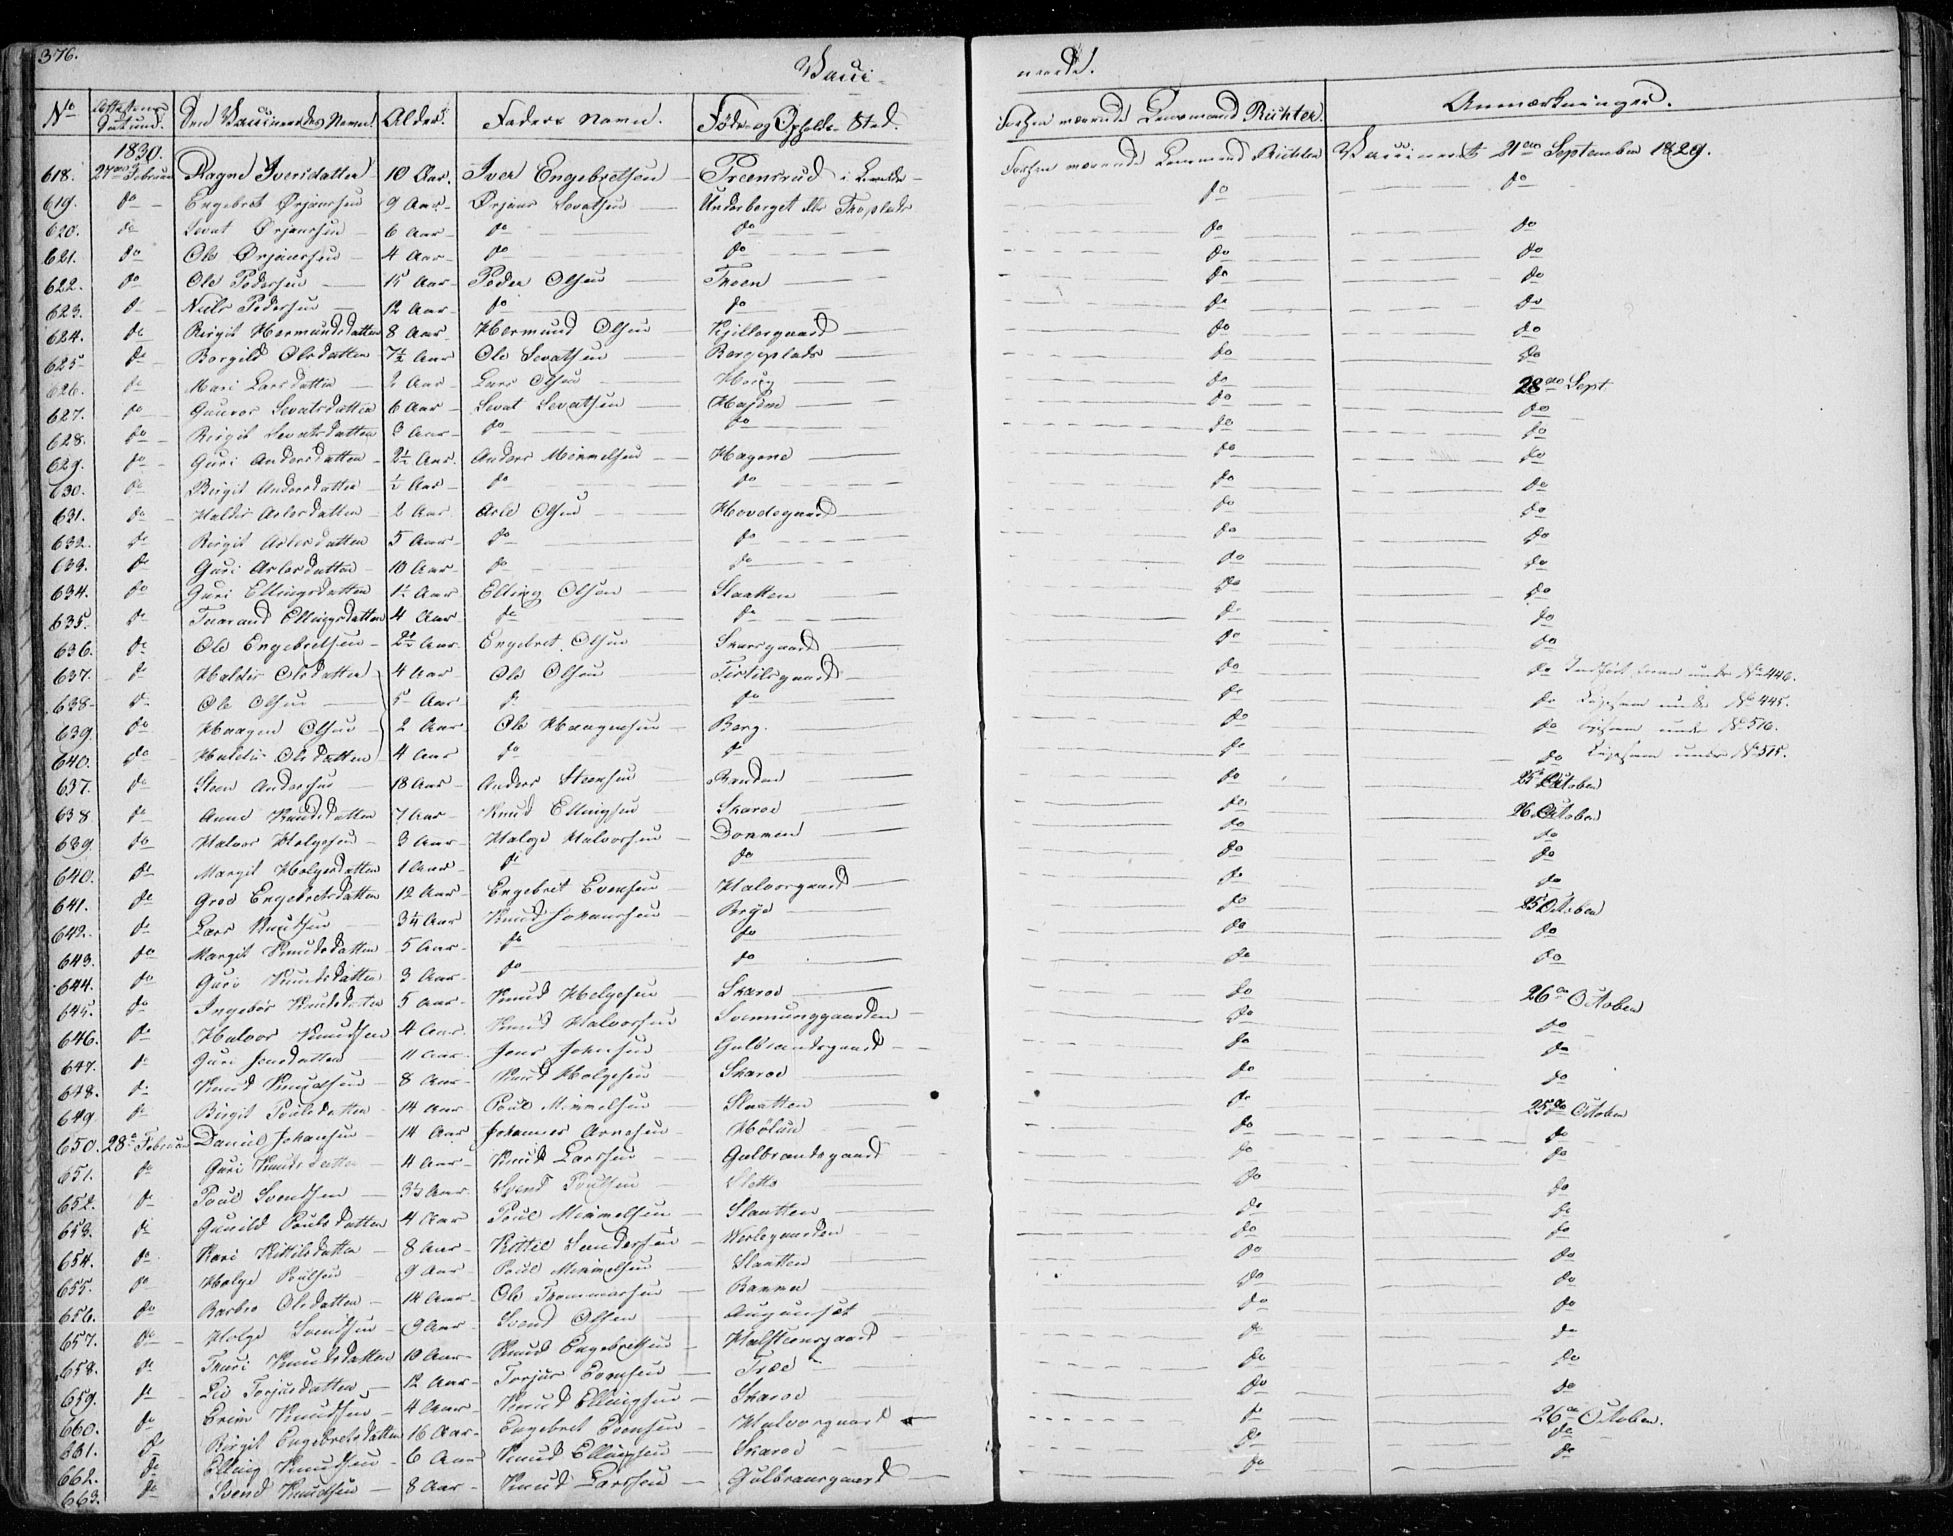 376.
Vacci- nerede.
No | Attestens Datum. | Den Vaccineredes Navn. | Alder. | Faders Navn. | Føde- og Opholds-Sted. | Lensmand Richter. | Anmærkninger.
1830.
618. | 27de Februar | Ragne Iversdatter | 10 Aar. | Iver Engebretsen | i | Lensmand Richter | Vaccineret 21de September 1829.
619. | do | Engebret Ørjansen | 9 Aar | Ørjans Sevatsen | Underberget | do | do
620. | do | Sevat Ørjansen | 6 Aar | do | do | do | do
621. | do | Ole Ørjansen | 4 Aar | do | do | do | do
622. | do | Ole Pedersen | 15 Aar | Peder Olsen | Thoen | do | do
623. | do | Niels Pedersen | 12 Aar | do | do | do | do
624. | do | Birgit Hermundsdatter | 8 Aar | Hermund Olsen | Kjillesgaard | do | do
625 | do | Borgild Olsdatter | 7½ Aar | Ole Sevatsen | Bergeplads | do | do
626. | do | Mari Larsdatter | 2 Aar | Lars Olsen | Houg | do | 28de Sept
627. | do | Gunvor Sevatsdatter | 6 Aar | Sevat Sevatsen | Hajem | do | do
628. | do | Birgit Sevatsdatter | 3 Aar | do | do | do | do
629. | do | Guri Andersdatter | 2½ Aar. | Anders Mimmelsen | Hagene | do | do
630. | do | Birgit Andersdatter | ½ Aar | do | do | do | do
631. | do | Haldis Aslesdatter | 2 Aar | Asle Olsen | Hovdegaard | do | do
632. | do | Birgit Aslesdatter | 5 Aar | do | do | do | do
633. | do | Guri Aslesdatter | 10 Aar | do | do | do | do
634. | do | Guri Ellingsdatter | 1½ Aar | Elling Olsen | Slaatten | do | do
635. | do | Tuarand Ellingsdatter | 4 Aar | do | do | do | do
636. | do | Ole Engebretsen | 2½ Aar | Engebret Olsen | Skarsgaard | do | do
637. | do | Haldis Olsdatter | 4 Aar | Ole Olsen | Tistilsgaard | do | do Indført under No 446.
638 | do | Ole Olsen | 5 Aar | do | do | do | do Ligesaa under No 445.
639 | do | Haagen Olsen | 2 Aar | Ole Haagensen | Berg. | do | do ligesaa under No 516.
640. | do | Haldis Olsdatter | 4 Aar | do | do | do | do Ligesaa under No 515.
637. | do | Steen Andersen | 18 Aar | Anders Steensen | Bruden | do | 25 October
638 | do | Anne Knudsdatter | 7 Aar | Knud Ellingsen | Skaroe | do | 26 October
639 | do | Halvor Helgesen | 3 Aar | Helge Halvorsen | Dokken | do | do
640. | do | Margit Helgesdatter | 1 Aar | do | do | do | do
641. | do | Groe Engebretsdatter | 12 Aar | Engebret Evensen | Halvorsgaard | do | do
642. | do | Lars Knudsen | 3¼ Aar | Knud Johansen | Brye | do | 25 October
643. | do | Margit Knudsdatter | 5 Aar | do | do | do | do
644. | do | Guri Knudsdatter | 3 Aar | do | do | do | do
645. | do | Ingebor Knudsdatter | 5 Aar | Knud Helgesen | Skaroe | do | 26de October
646. | do | Halvor Knudsen | 4 Aar | Knud Halvorsen | Svennunggaarden | do | do
647. | do | Guri Jensdatter | 11 Aar | Jens Johnsen | Gulbrandsgaard | do | do
648. | do | Knud Knudsen | 8 Aar | Knud Helgesen | Skaroe | do | do
649 | do | Birgit Poulsdatter | 14 Aar | Poul Mimmelsen | Slaatten | do | 25de October
650. | 28de Februar | Daniel Johansen | 14 Aar | Johannes Arnesen | Hølun | do | do
651. | do | Guri Knudsdatter | 4 Aar | Knud Larsen | Gulbrandsgaard | do | do
652. | do | Poul Svendsen | 3½ Aar | Svend Poulsen | Sletto | do | do
653. | do | Gunild Poulsdatter | 4 Aar | Poul Mimmelsen | Slaatten | do | do
654. | do | Kari Kittilsdatter | 8 Aar | Kittil Sandersen | Werlegaarden | do | do
655. | do | Helge Poulsen | 9 Aar | Poul Mimmelsen | Slaatten | do | do
656. | do | Barbro Olsdatter | 14 Aar | Ole Thommassen | Bakken | do | do
657. | do | Helge Svendsen | 9 Aar | Svend Olsen | Augunset | do | do
658. | do | Thuri Knudsdatter | 10 Aar | Knud Engebretsen | Halsteensgaard | do | do
659. | do | Liv Torjusdatter | 12 Aar | Torjus Evensen | Træe | do | do
660. | do | Knudsen | 4 Aar | Knud Ellingsen | Skaroe | do | do
661. | do | Birgit Engebretsdatter | 16 Aar | Engebret Evensen | Halvorsgaard | do | 26de October.
662. | do | Elling Knudsen | 6 Aar | Knud Ellingsen | Skaroe | do | do
663. | do | Svend Knudsen | 8 Aar | Knud Larsen | Gulbransgaard | do | do